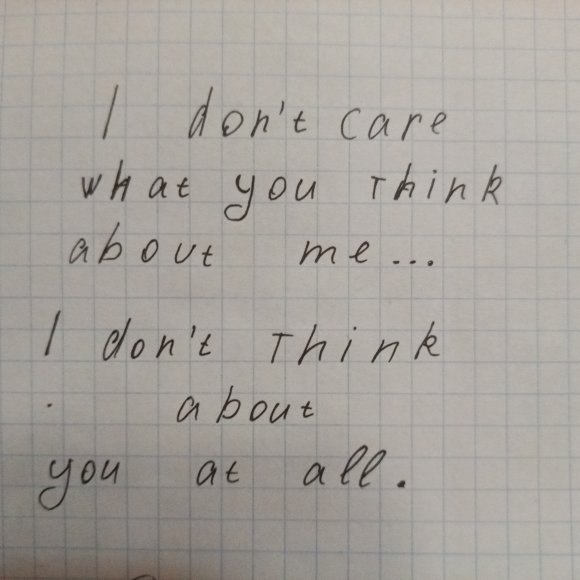 I don't care
what you think
about me...
I don't think
about
you at all.